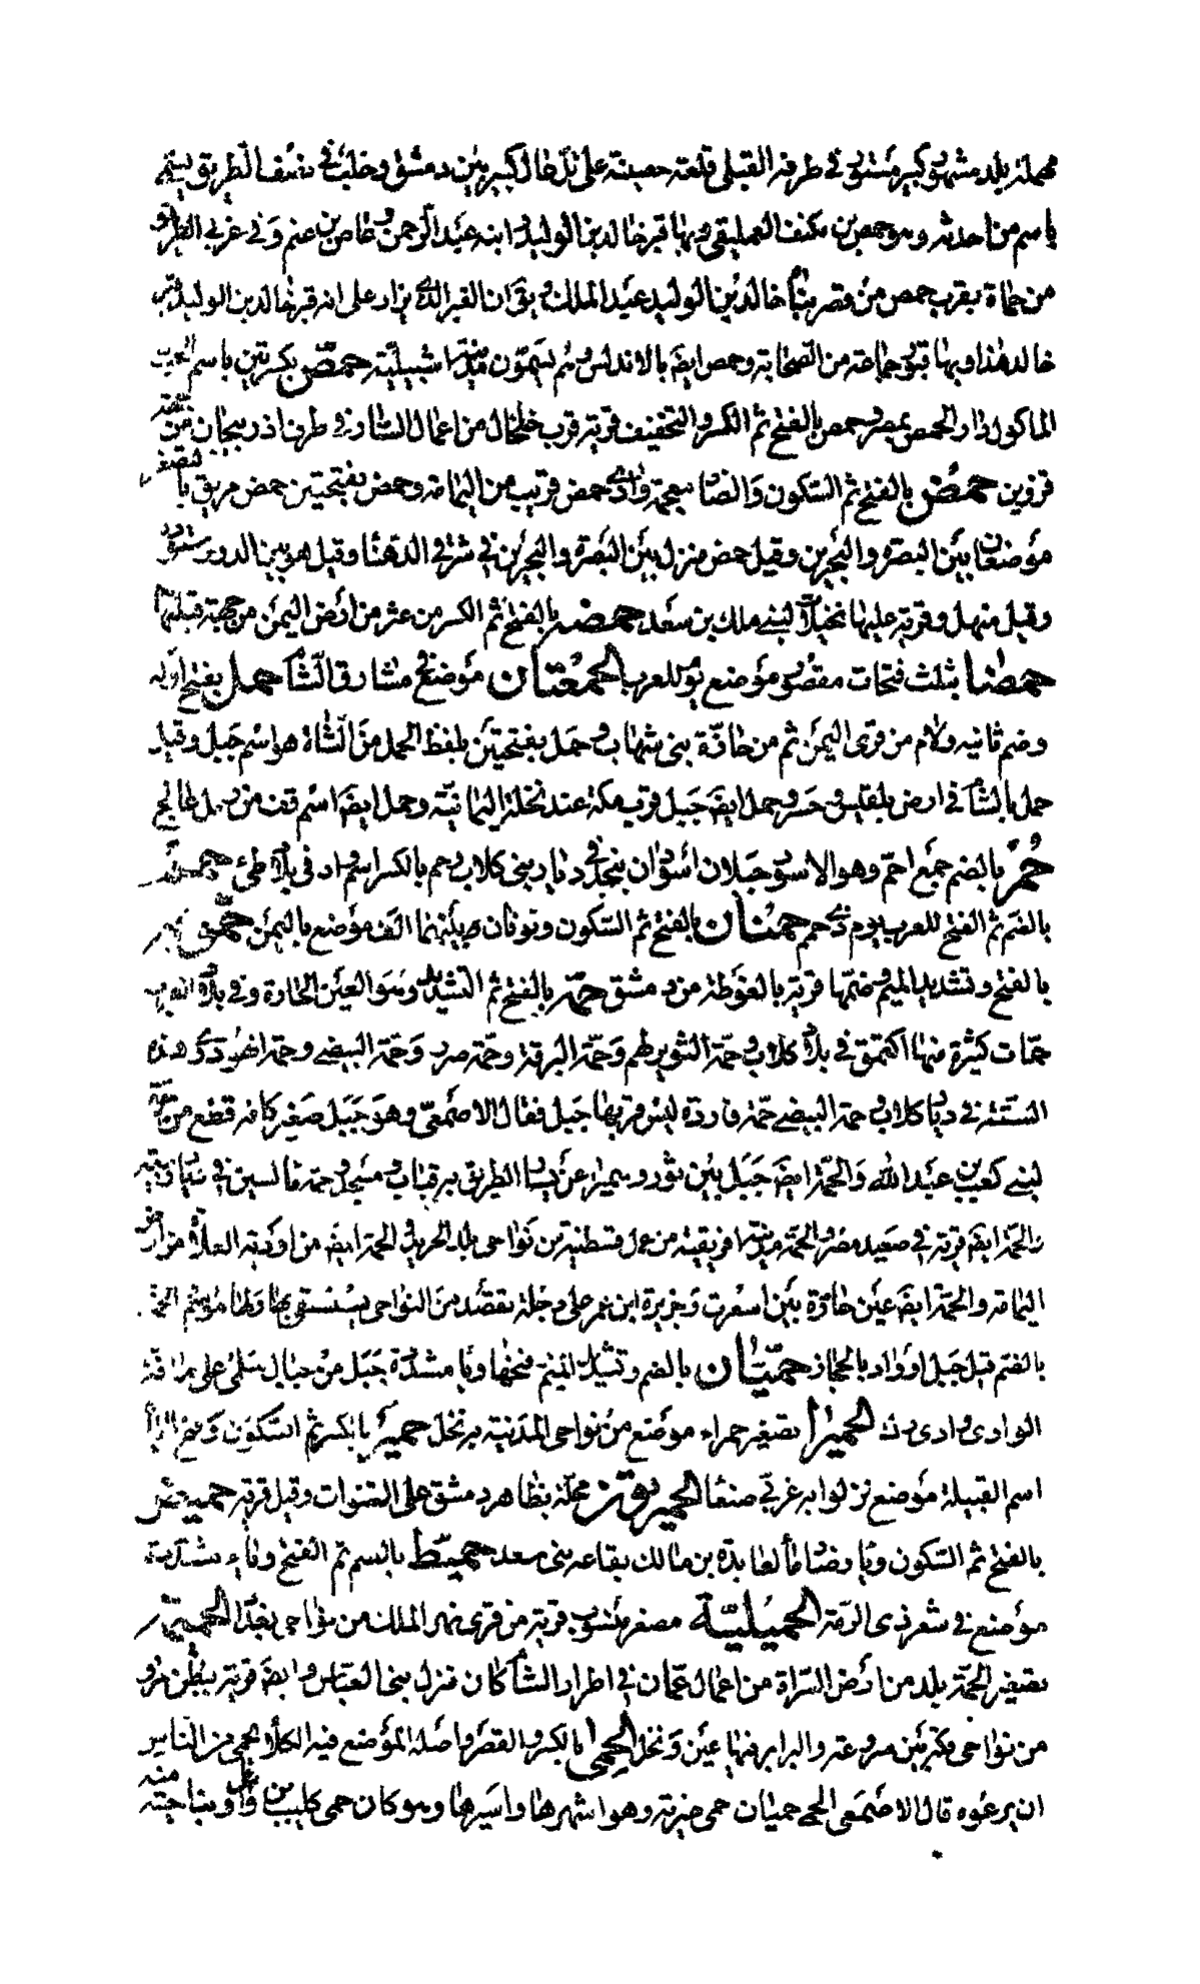 مهملة بلد مشهور كبير مستور في طرفه القبلي قلعة حصينة على تل عال كبير بين دمشق وحلب في نصف الطريق يسمى
باسم من احدثه وهو حمص بن مكنف العمليقي وبها قبر خالد بن الوليد وابنه عبد الرحمن وعياض بن غنم وفي غربي الطريق
من حماة بقرب حمص من قصر بناء خالد بن الوليد عبد الملك ويق ان القبر الذي يزار على انه قبر خالد بن الوليد قبر
خالد هذا وبها قبور جماعة من الصحابة وحمص ايضا بالاندلس وهم يسمون مدينة اشبيلية حمص بكسرتين باسم الحب
الماكول دار الحمص بمصر وحمص بالفتح ثم الكسر والتخفيف قرية قرب خلخال من اعمال الشار في طرف اذربيجان من جهة
قزوين حمض بالفتح ثم السكون والضاد معجمة وادي حمض قريب من اليمامة وحمض بفتحتين حمض مريق بالتصغير
موضعان بين البصرة والبحرين وقيل حمض منزل بين البصرة والبحرين في شرقي الدهنا وقيل هو بين الدو وسودة
وقيل منهل وقرية عليها نخيلات لبني ملك بن سعد حمضة بالفتح ثم الكسر من عثر من ارض اليمن من جهة قبلتها
حمضنا بثلث فتحات مقصور موضع يوم للعرب الحمعتان موضع في مشارق الشام حمل بفتح اوله
وضم ثانيه ولام من قرى اليمن ثم من حازة بني شهاب وحمل بفتحتين بلفظ الحمل من الشاة هو اسم جبل وقيل
حمل بالشام في ارض بلقين وحسر وحمل ايضا جبل قرب مكة عند نخلة اليمانية وحمل ايضا اسم قف من رمل عالج
حم بالضم جمع احم وهو الاسود جبلان اسودان بنجد في ديار بني كلاب وحم بالكسر اسم واد في بلاد طيء
بالضم ثم الفتح للعرب يوم ذي حمم حمنان بالفتح ثم السكون ونونان بينهما الف موضع باليمن
بالفتح وتشديد الميم وضمها قرية بالغوطة من دمشق حمة بالفتح ثم التشديد وهو العين الحارة وفي بلاد العرب
حمات كثيرة منها اكتمق في بلاد كلاب وحمة الثوير لهم وحمة البرقة وحمة صرد وحمة البيضي وحمة الهودي هذه
الستة في ديار كلاب وحمة البيضي حمة فاردة ليس قربها جبل فقال الاصمعي وهو جبل صغير كانه قطع من حرة
لبني كعب بن عبد الله والحمة ايضا جبل بين ثور وسميرا عن يسار الطريق به قباب ومسجد وحمة ماكسين في ديار ربيعة
والحمة ايضا قرية في صعيد مصر والحمة مدينة افريقية من عمل قسنطينة من نواحي بلاد الجريد والحمة ايضا من اودية العلاة من ارض
اليمامة والحمة ايضا عين حارة بين اسعرت وجزيرة ابن عمر على دجلة تقصد من النواحي يستشفي بها ولها موسم الحمة
بالضم قيل جبل او واد بالحجاز حميان بالضم وتشديد الميم فتحها ويا مشددة جبل من جبال سلمى على حافة
الوادي وادي رك الحميرا تصغير حمراء موضع من نواحي المدينة به نخل حمير بالكسر ثم السكون وفتح اليا
اسم القبيلة موضع نزلوا به غربي صنعا الحميريون محلة بظاهر دمشق على القنوات وقيل قرية حميض
بالفتح ثم السكون ويا وضاد ما لعايذة بن مالك بقاعة بني سعد حميط بالضم ثم الفتح وياء مشددة
موضع في شعر ذي الرمة الحميلية مصغر منسوب قرية من قرى نهر الملك من نواحي بغداد الحميمة
تصغير الحمة بلد من ارض السراة من اعمال عمان في اطراف الشام كان منزل بني العباس وايضا قرية ببطن مر
من نواحي مكة بين سروعة والبرابر فيها عين ونخل الحمى بالكسر والقصر واصله الموضع فيه الكلأ يحمى من الناس
ان يرعوه قال الاصمعي الحمى حميان حمى ضرية وهو اشهرها واسيرها وهو كان حمى كليب بن وائل وبناحية منه